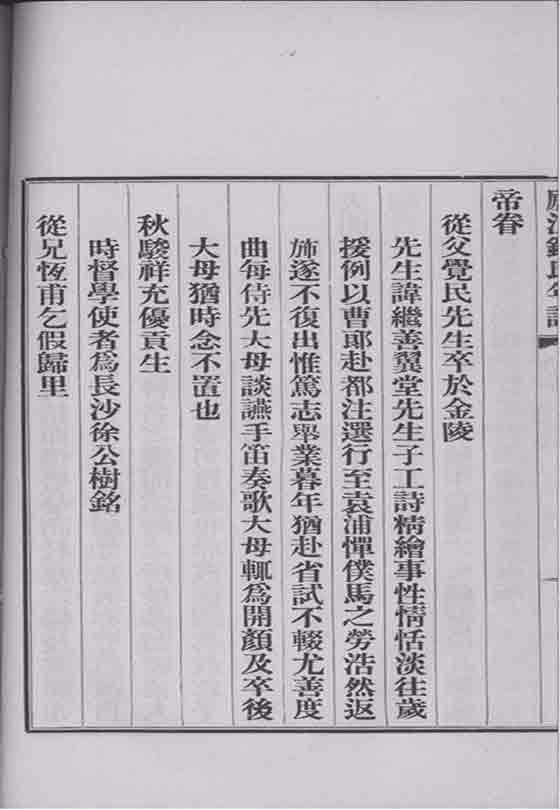 帝眷
從父覺民先生卒於金陵
先生諱繼善翼堂先生子工詩精繪事性情恬淡往歲
援例以曹郎赴都注選行至袁浦憚僕馬之勞浩然返
斾遂不復出惟篤志舉業暮年猶赴省試不輟尤善度
曲每侍先大母談讌手笛奏歌大母輒爲開顏及卒後
大母猶時念不置也
秋駿祥充優貢生
時督學使者爲長沙徐公樹銘
從兄恆甫乞假歸里